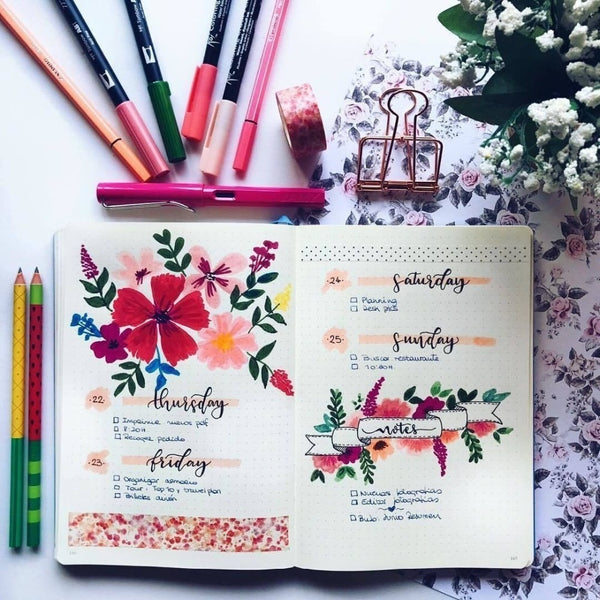 22 thursday
Imprimir nuevos pdf
8:20H
Recoger pedido
23 friday
Organizar armario
Tour: Top 10 y travel plan
Billetes avión
24 saturday
Planning
25 sunday
Buscar restaurante
10:00H
notes
Nuevas fotografías
Editar fotografías
Bujo: Junio Resumen